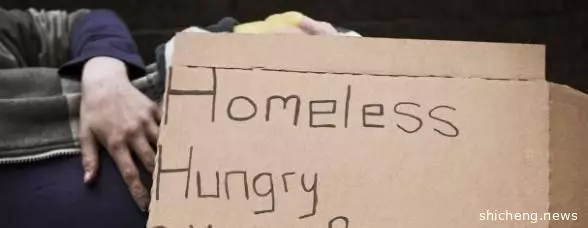 Homeless
Hungry
shicheng.news